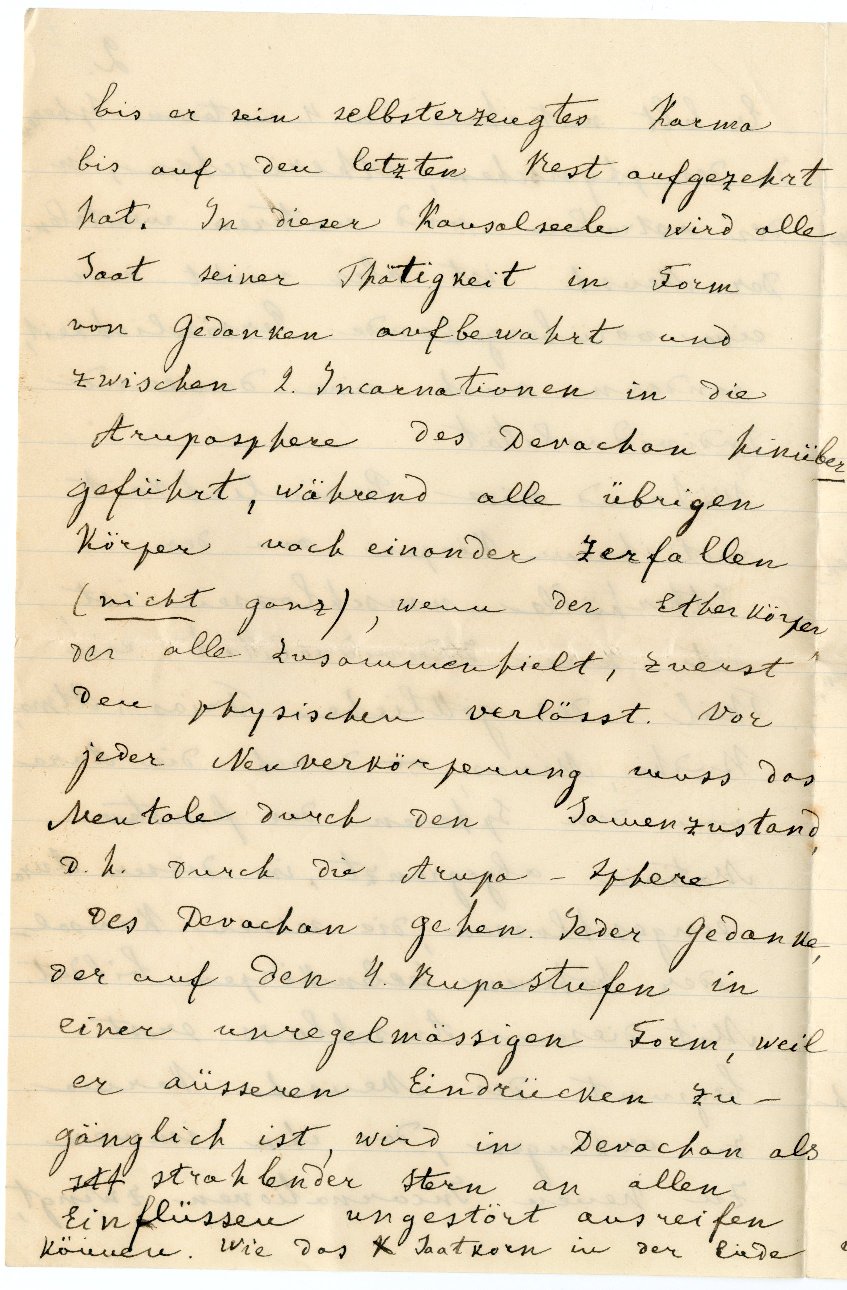 bis er sein selbsterzeugtes Karma
bis auf den letzten Rest aufgezehrt
hat. In dieser Kausalseele wird alle
Saat seiner Thätigkeit in Form
von Gedanken aufbewahrt und
zwischen 2. Incarnationen in die
Arupasphere des Devachan hinüber
geführt, während alle übrigen
Körper nach einander zerfallen
(nicht ganz), wenn der Etherkörper
der alle zusammenhielt, zuerst
den physischen verlässt. Vor
jeder Neuverkörperung muss das
Mentale durch den Samenzustand,
d. h. durch die Arupa - Sphere
des Devachan gehen. Jeder Gedanke,
der auf den 4. Rupastufen in
einer unregelmässigen Form, weil
er äüsseren Eindrücken zu-
gänglich ist, wird in Devachan als
strahlender Stern an allen
Einflüssen ungestört ausreifen
können. Wie das Saatkorn in der Erde